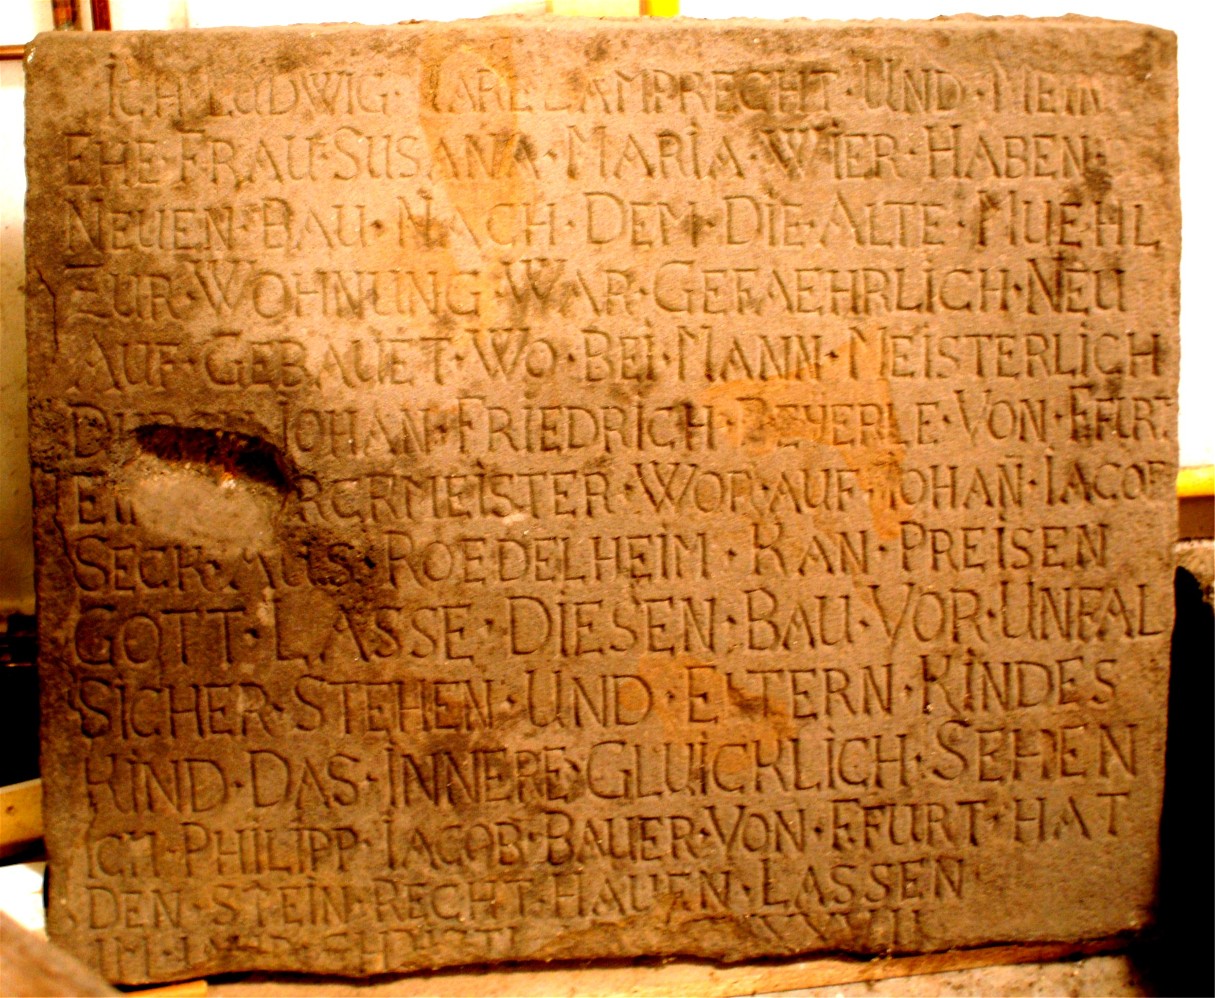 ICH·LUDWIG·KARL LAMPRECHT·UND·MEIN
EHE·FRAU·SUSANA·MARIA·WIER·HABEN
NEUEN·BAU·NACH·DEM·DIE·ALTE·MUEHL
ZUR·WOHNUNG·WAR·GEFAEHRLICH·NEU
AUF·GEBAUET·WO·BEI·MANN·MEISTERLICH
DURCH JOHAN·FRIEDRICH·BEYERLE·VON·FFURT
MEISTER·WOR·AUF·JOHAN·IACOB
SECK·AUS·ROEDELHEIM·KAN·PREISEN
GOTT·LASSE·DIESEN·BAU·VOR·UNFAL
SICHER·STEHEN·UND·ELTERN·KINDES
KIND·DAS·INNERE·GLUICKLICH·SEHEN
ICH·PHILIPP·IACOB·BAUER·VON·F·FURT·HAT
DEN·STEIN·RECHT·HAUEN·LASSEN
IM·IAHR·CHRISTI